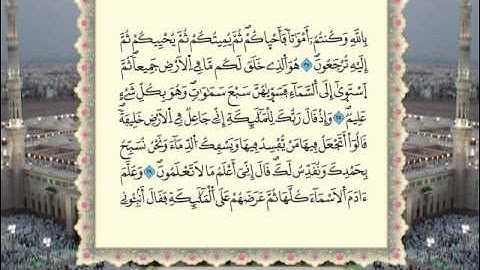 بِاللَّهِ وَكُنتُمُۥٓ أَمْوَٰتٗا فَأَحْيَٰكُمْ ثُمَّ يُمِيتُكُمْ ثُمَّ يُحْيِيكُمْ ثُمَّ
إِلَيْهِ تُرْجَعُونَ هُوَ ٱلَّذِي خَلَقَ لَكُم مَّا فِي ٱلْأَرْضِ جَمِيعٗا ثُمَّ
ٱسْتَوَىٰٓ إِلَى ٱلسَّمَآءِ فَسَوَّىٰهُنَّ سَبْعَ سَمَٰوَٰتٖ وَهُوَ بِكُلِّ شَيْءٍ
عَلِيمٞ وَإِذْ قَالَ رَبُّكَ لِلْمَلَٰٓئِكَةِ إِنِّي جَاعِلٞ فِي ٱلْأَرْضِ خَلِيفَةٗ
قَالُوٓاْ أَتَجْعَلُ فِيهَا مَن يُفْسِدُ فِيهَا وَيَسْفِكُ ٱلدِّمَآءَ وَنَحْنُ نُسَبِّحُ
بِحَمْدِكَ وَنُقَدِّسُ لَكَ قَالَ إِنِّيَ أَعْلَمُ مَا لَا تَعْلَمُونَ وَعَلَّمَ
ءَادَمَ ٱلْأَسْمَآءَ كُلَّهَا ثُمَّ عَرَضَهُمْ عَلَى ٱلْمَلَٰٓئِكَةِ فَقَالَ أَنۢبِـُٔونِي